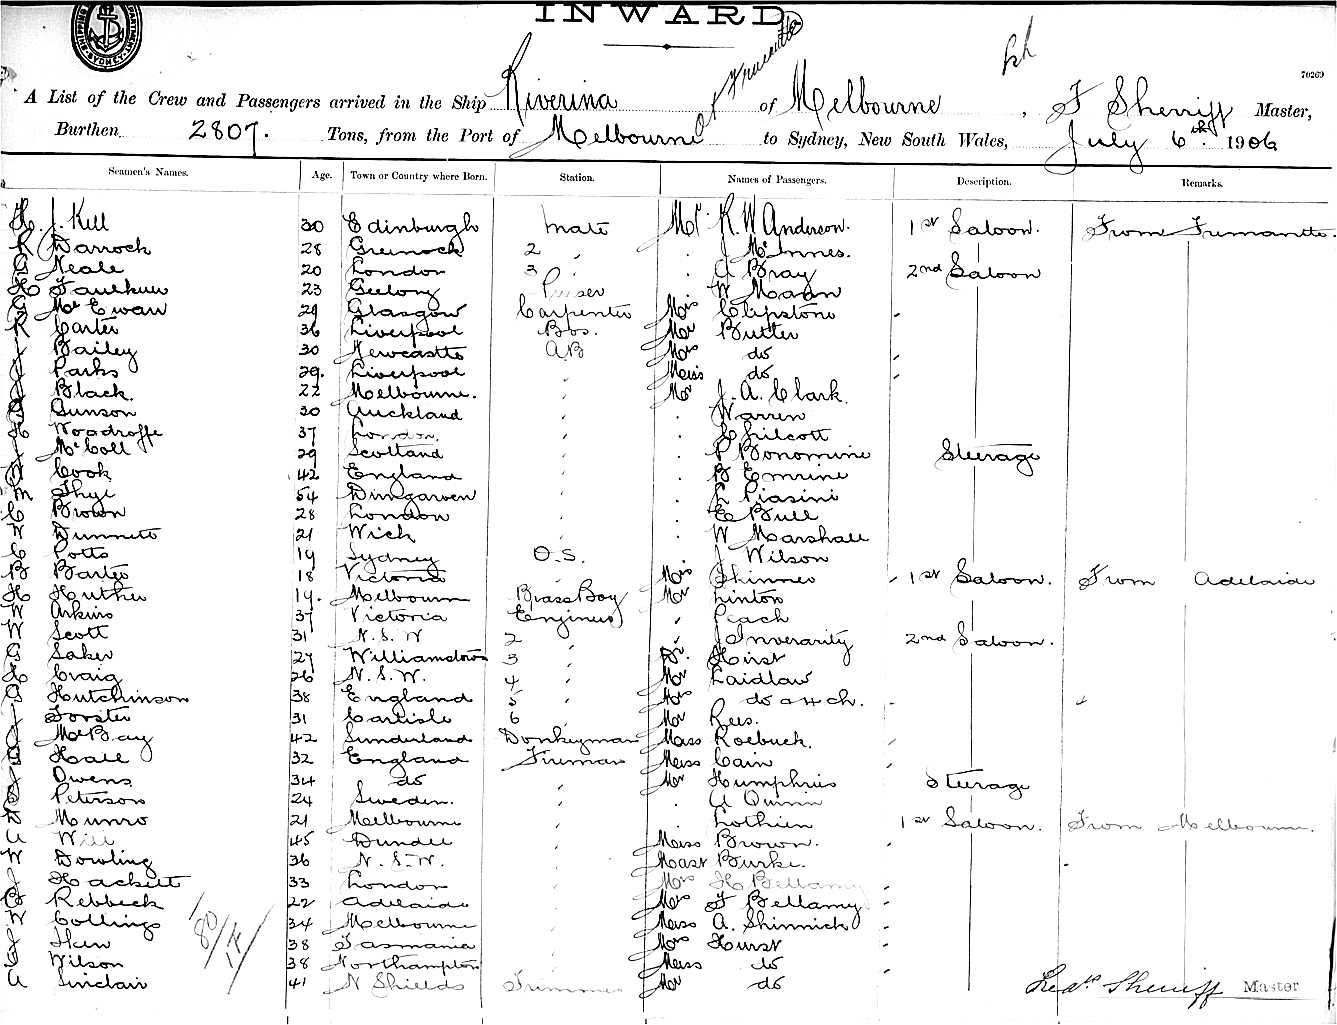 INWARD
Fremantle
70269
A List of the Crew and Passengers arrived in the Ship Riverina of Melbourne, F Sherriff Master,
Burthen 2807. Tons, from the Port of Melbourne to Sydney, New South Wales, July 6th 1906
Seamen's Names. Age. Town or Country where Born. Station. Names of Passengers. Description. Remarks.
H. J. Kell 30 Edinburgh Mate Mr. R. W Anderson. 1st Saloon. From Fremantle.
R Darroch 28 Greenock 2 " . J McInnes.
Neale 20 London 3 . A Bray 2nd Saloon
H Faulkner 23 Geelong Purser W Mann
G McEwan 29 Glasgow Carpenter Mrs Clipstone
R Carter 36 Liverpool Bos. Mr Butler
Bailey 30 Newcastle AB Mrs do
Parks 29. Liverpool " Miss do
Black 22 Melbourne. " Mr J. A. Clark.
Gunson 30 Auckland " . Warren
Woodroffe 37 London. " . Chilcott
McColl 29 Scotland " . P Bonomine Steerage
Cook 42 England " . B Emrine
M Shye 54 Dungarven " . L Piasini
C Brown 28 London " . E Bull
W Dunnett 21 Wick . W Marshall
C Potts 19 Sydney O.S. J Wilson
B Barter 18 Victoria " Mrs Skinner 1st Saloon. From Adelaide
H Huther 19. Melbourne Brass Boy Mr Linton
W Arkins 37 Victoria Engineer " Peach
W Scott 31 N. S. W 2 " " J Inverarity 2nd Saloon.
G Saker 27 Williamstown 3 " Dr. Hirst
H Craig 26 N. S. W. 4 " Mr Laidlaw
Hutchinson 38 England 5 " Mrs do & ch.
Forster 31 Carlisle 6 Mr Rees.
McBay 42 Sunderland Donkeyman Miss Roebuck.
Hall 32 England Fireman Miss Cain
Owens 34 do " Mr Humphries Steerage
Peterson 24 Sweden. " . A Quinn
Munro 21 Melbourne " . Lothien 1st Saloon. From Melbourne.
A Will 45 Dundee " Miss Brown.
W Dowling 36 N. S. W. " Mast Burke.
Hackett 33 London " Mrs H Bellamy
Rebbeck 22 Adelaide " Mrs F Bellamy
W Collings 34 Melbourne " Miss A. Shinnick
38 Tasmania " Mrs Hurst
Wilson 38 Northampton " Miss do
A Sinclair 41 N Shields Trimmer Mr do
80/17/
Fredk Sherriff Master